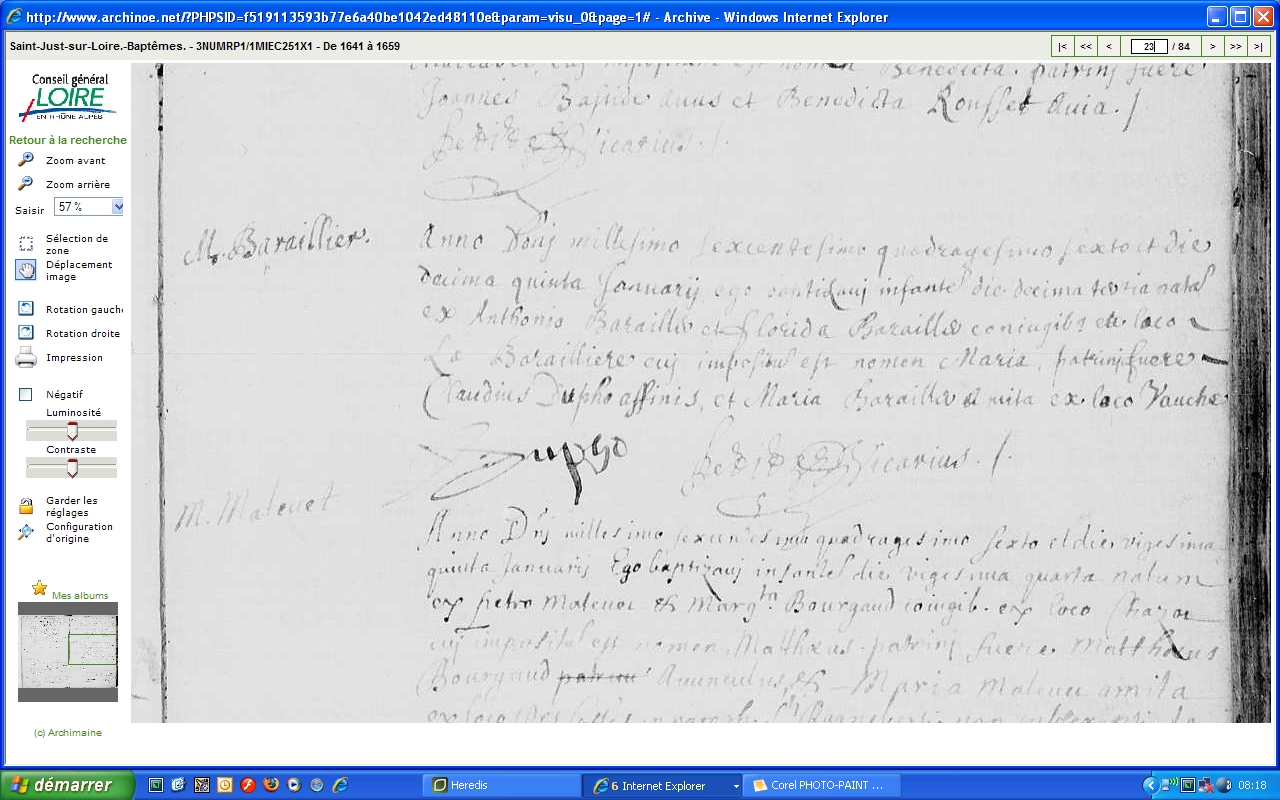 http://www.archinoe.net/?PHPSID=f519113593b77e6a40be1042ed48110e&param=visu_0&page=1# - Archive - Windows Internet Explorer
Saint-Just-sur-Loire.-Baptêmes. - 3NUMRP1/1MIEC251X1 - De 1641 à 1659
|< << < 23 / 84 > >> >|
Conseil général
LOIRE
EN RHÔNE ALPES
Retour à la recherche
Zoom avant
Zoom arrière
Saisir 57 %
Sélection de
zone
Déplacement
image
Rotation gauch
Rotation droite
Impression
Négatif
Luminosité
Contraste
Garder les
réglages
Configuration
d'origine
Mes albums
(c) Archimaine
est nomen Benedicta. patrinj fuere
Joannes Bastide avus et Benedicta Rousset avia.
vicarius.
M. Baraillier.
Anno Dnj millesimo sexcentesimo quadragesimo sexto et die
decima quinta Januarij ego baptizauj infante die decima tertia nata
ex Anthonio Baraillier et Florida Baraillier coniugibs ex loco
La Barailliere cuj impositu est nomen Maria, patrinj fuere
Claudius Dupho affinis, et Maria Baraillier amita ex loco Vauche
Dupho vicarius.
M. Mateuot
Anno Dnj millesimo sexcentesimo quadragesimo sexto et die vigesima
quinta Januarij Ego baptizauj infante die vigesima quarta natum
ex petro Mateuot & Margtn Bourgaud coiugib. ex loco
cuj impositu est nomen Matthæus. patrinj fuere Matthæus
Bourgaud patruu Auunculus, & Maria Mateuu amita
ex loco
démarrer
Heredis
6 Internet Explorer
Corel PHOTO-PAINT ...
08:18